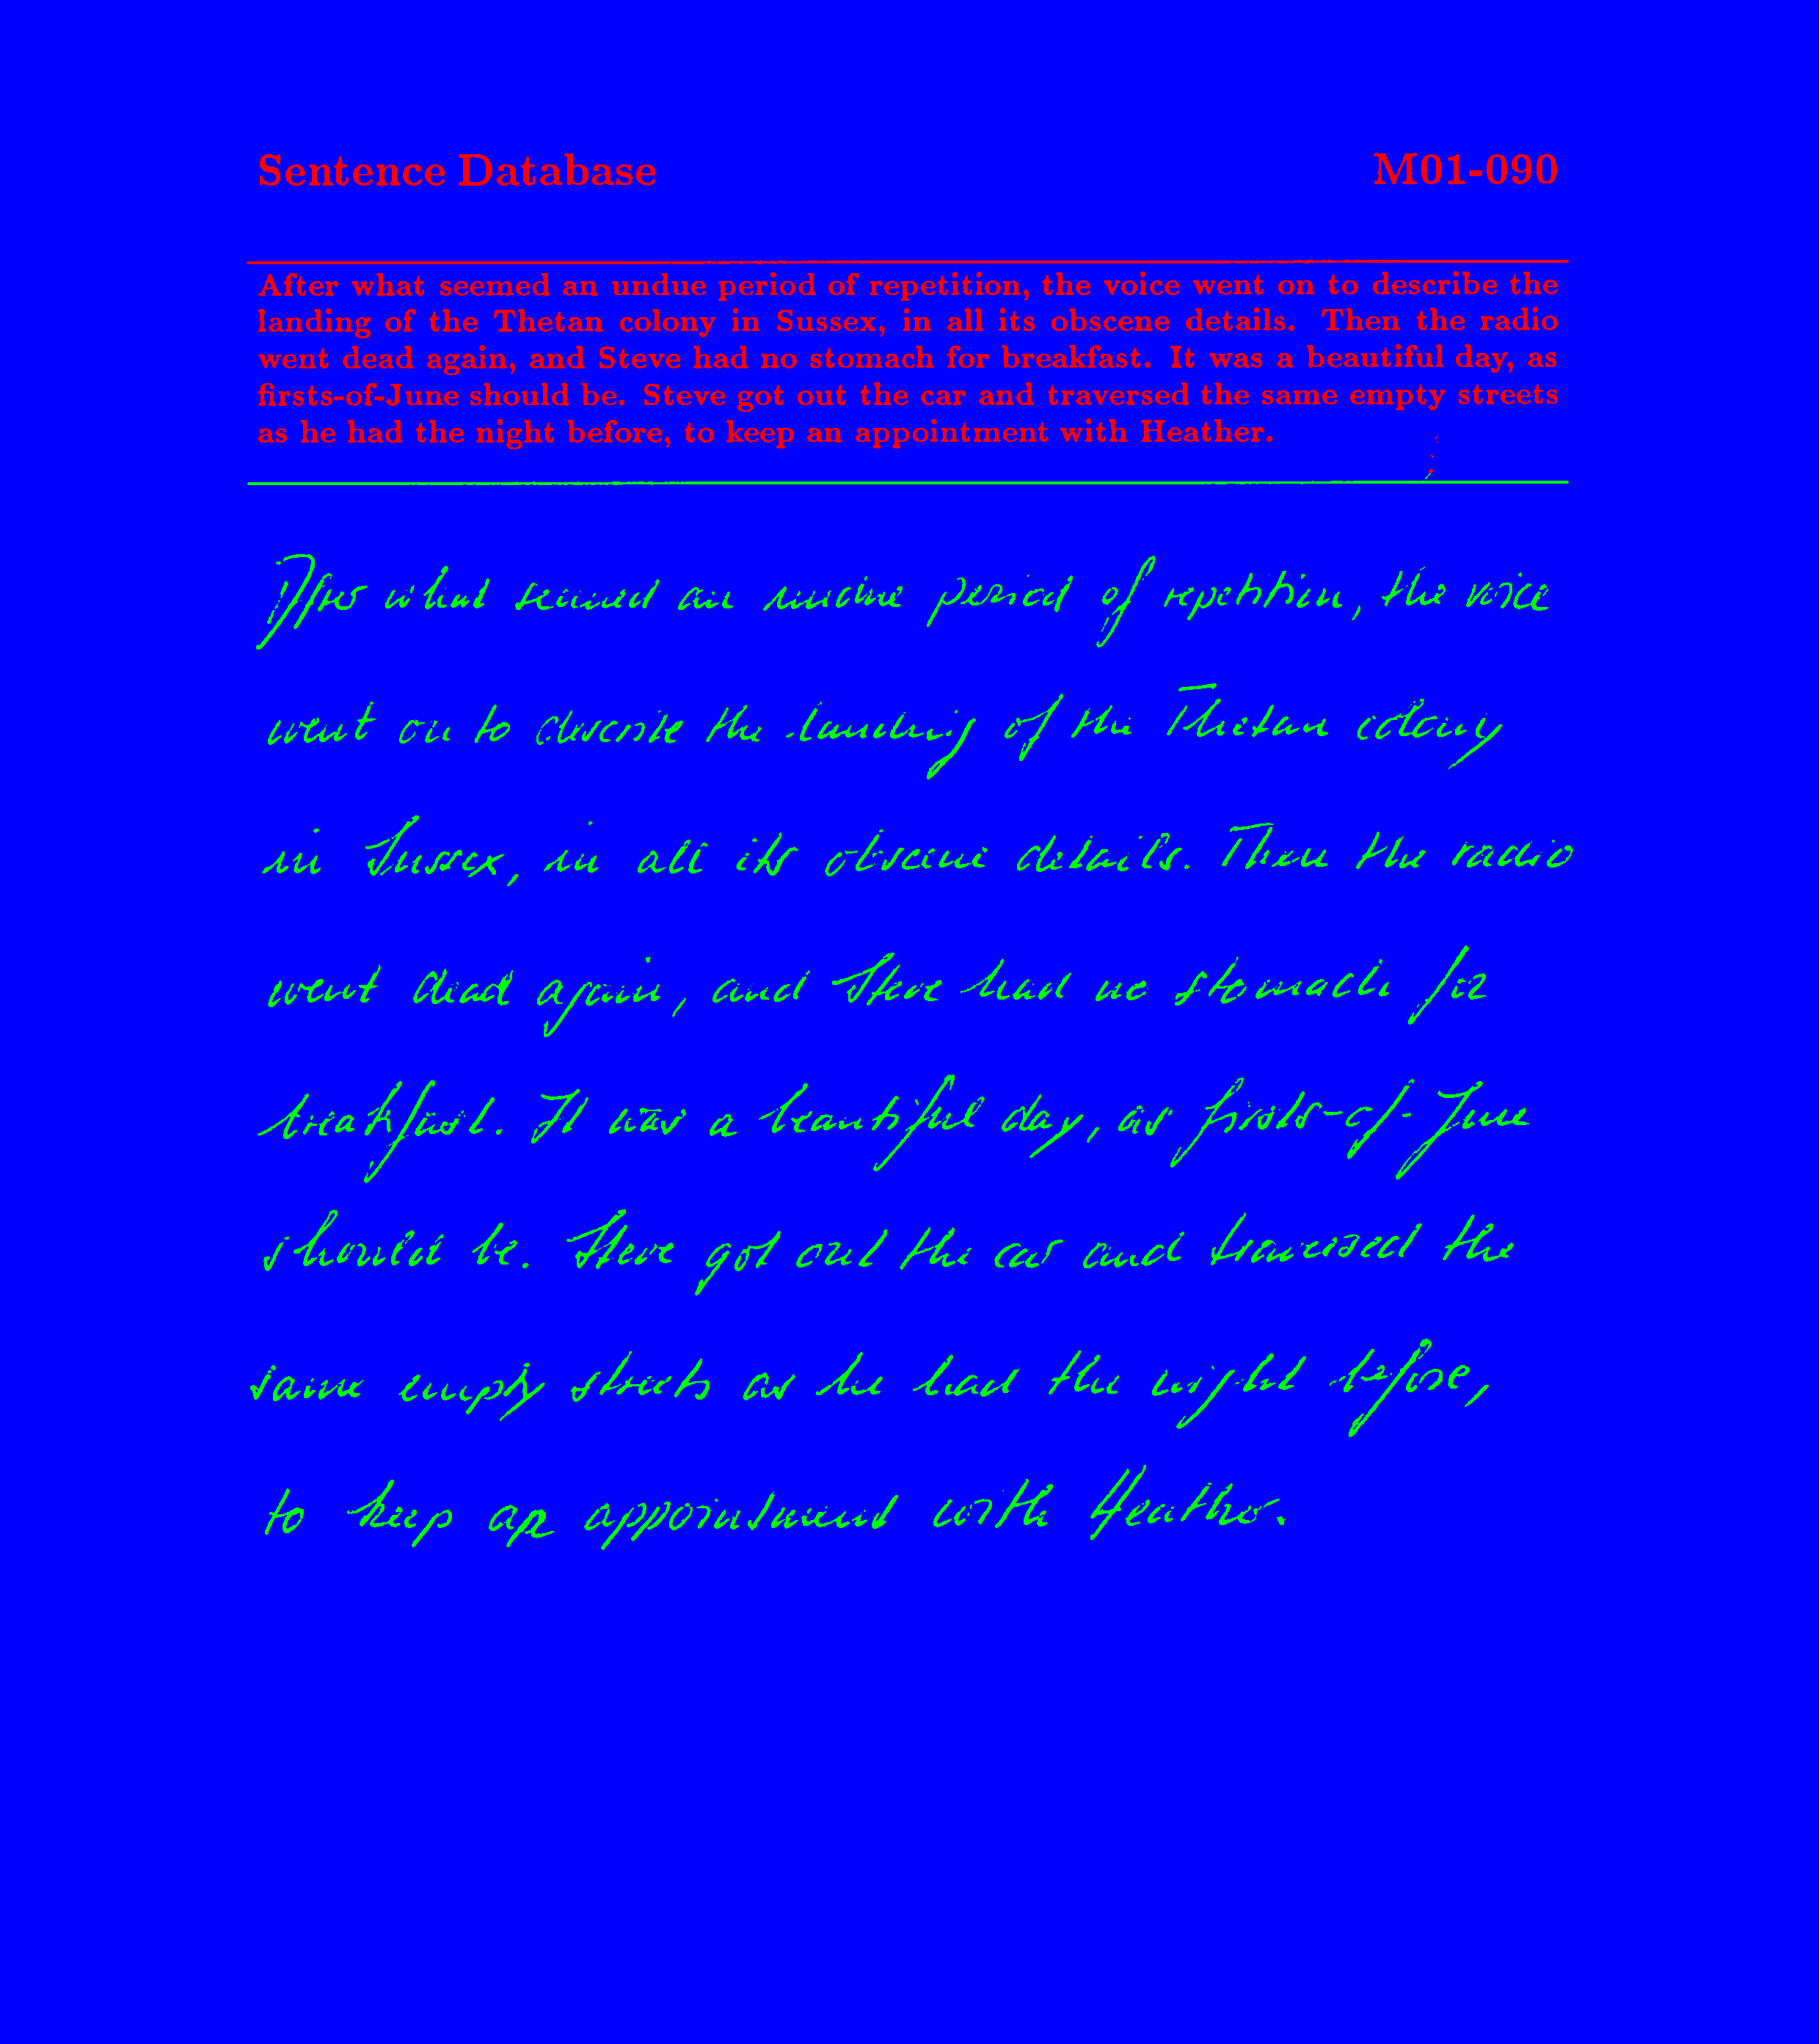 Sentence Database M01-090
After what seemed an undue period of repetition, the voice went on to describe the
landing of the Thetan colony in Sussex, in all its obscene details. Then the radio
went dead again, and Steve had no stomach for breakfast. It was a beautiful day, as
firsts-of-June should be. Steve got out the car and traversed the same empty streets
as he had the night before, to keep an appointment with Heather.
After what seemed an undue period of repetition, the voice
went on to describe the landing of the Thetan colony
in Sussex, in all its obscene details. Then the radio
went dead again, and Steve had no stomach for
breakfast. It was a beautiful day, as firsts-of-June
should be. Steve got out the car and traversed the
same empty streets as he had the night before,
to keep an appointment with Heather.